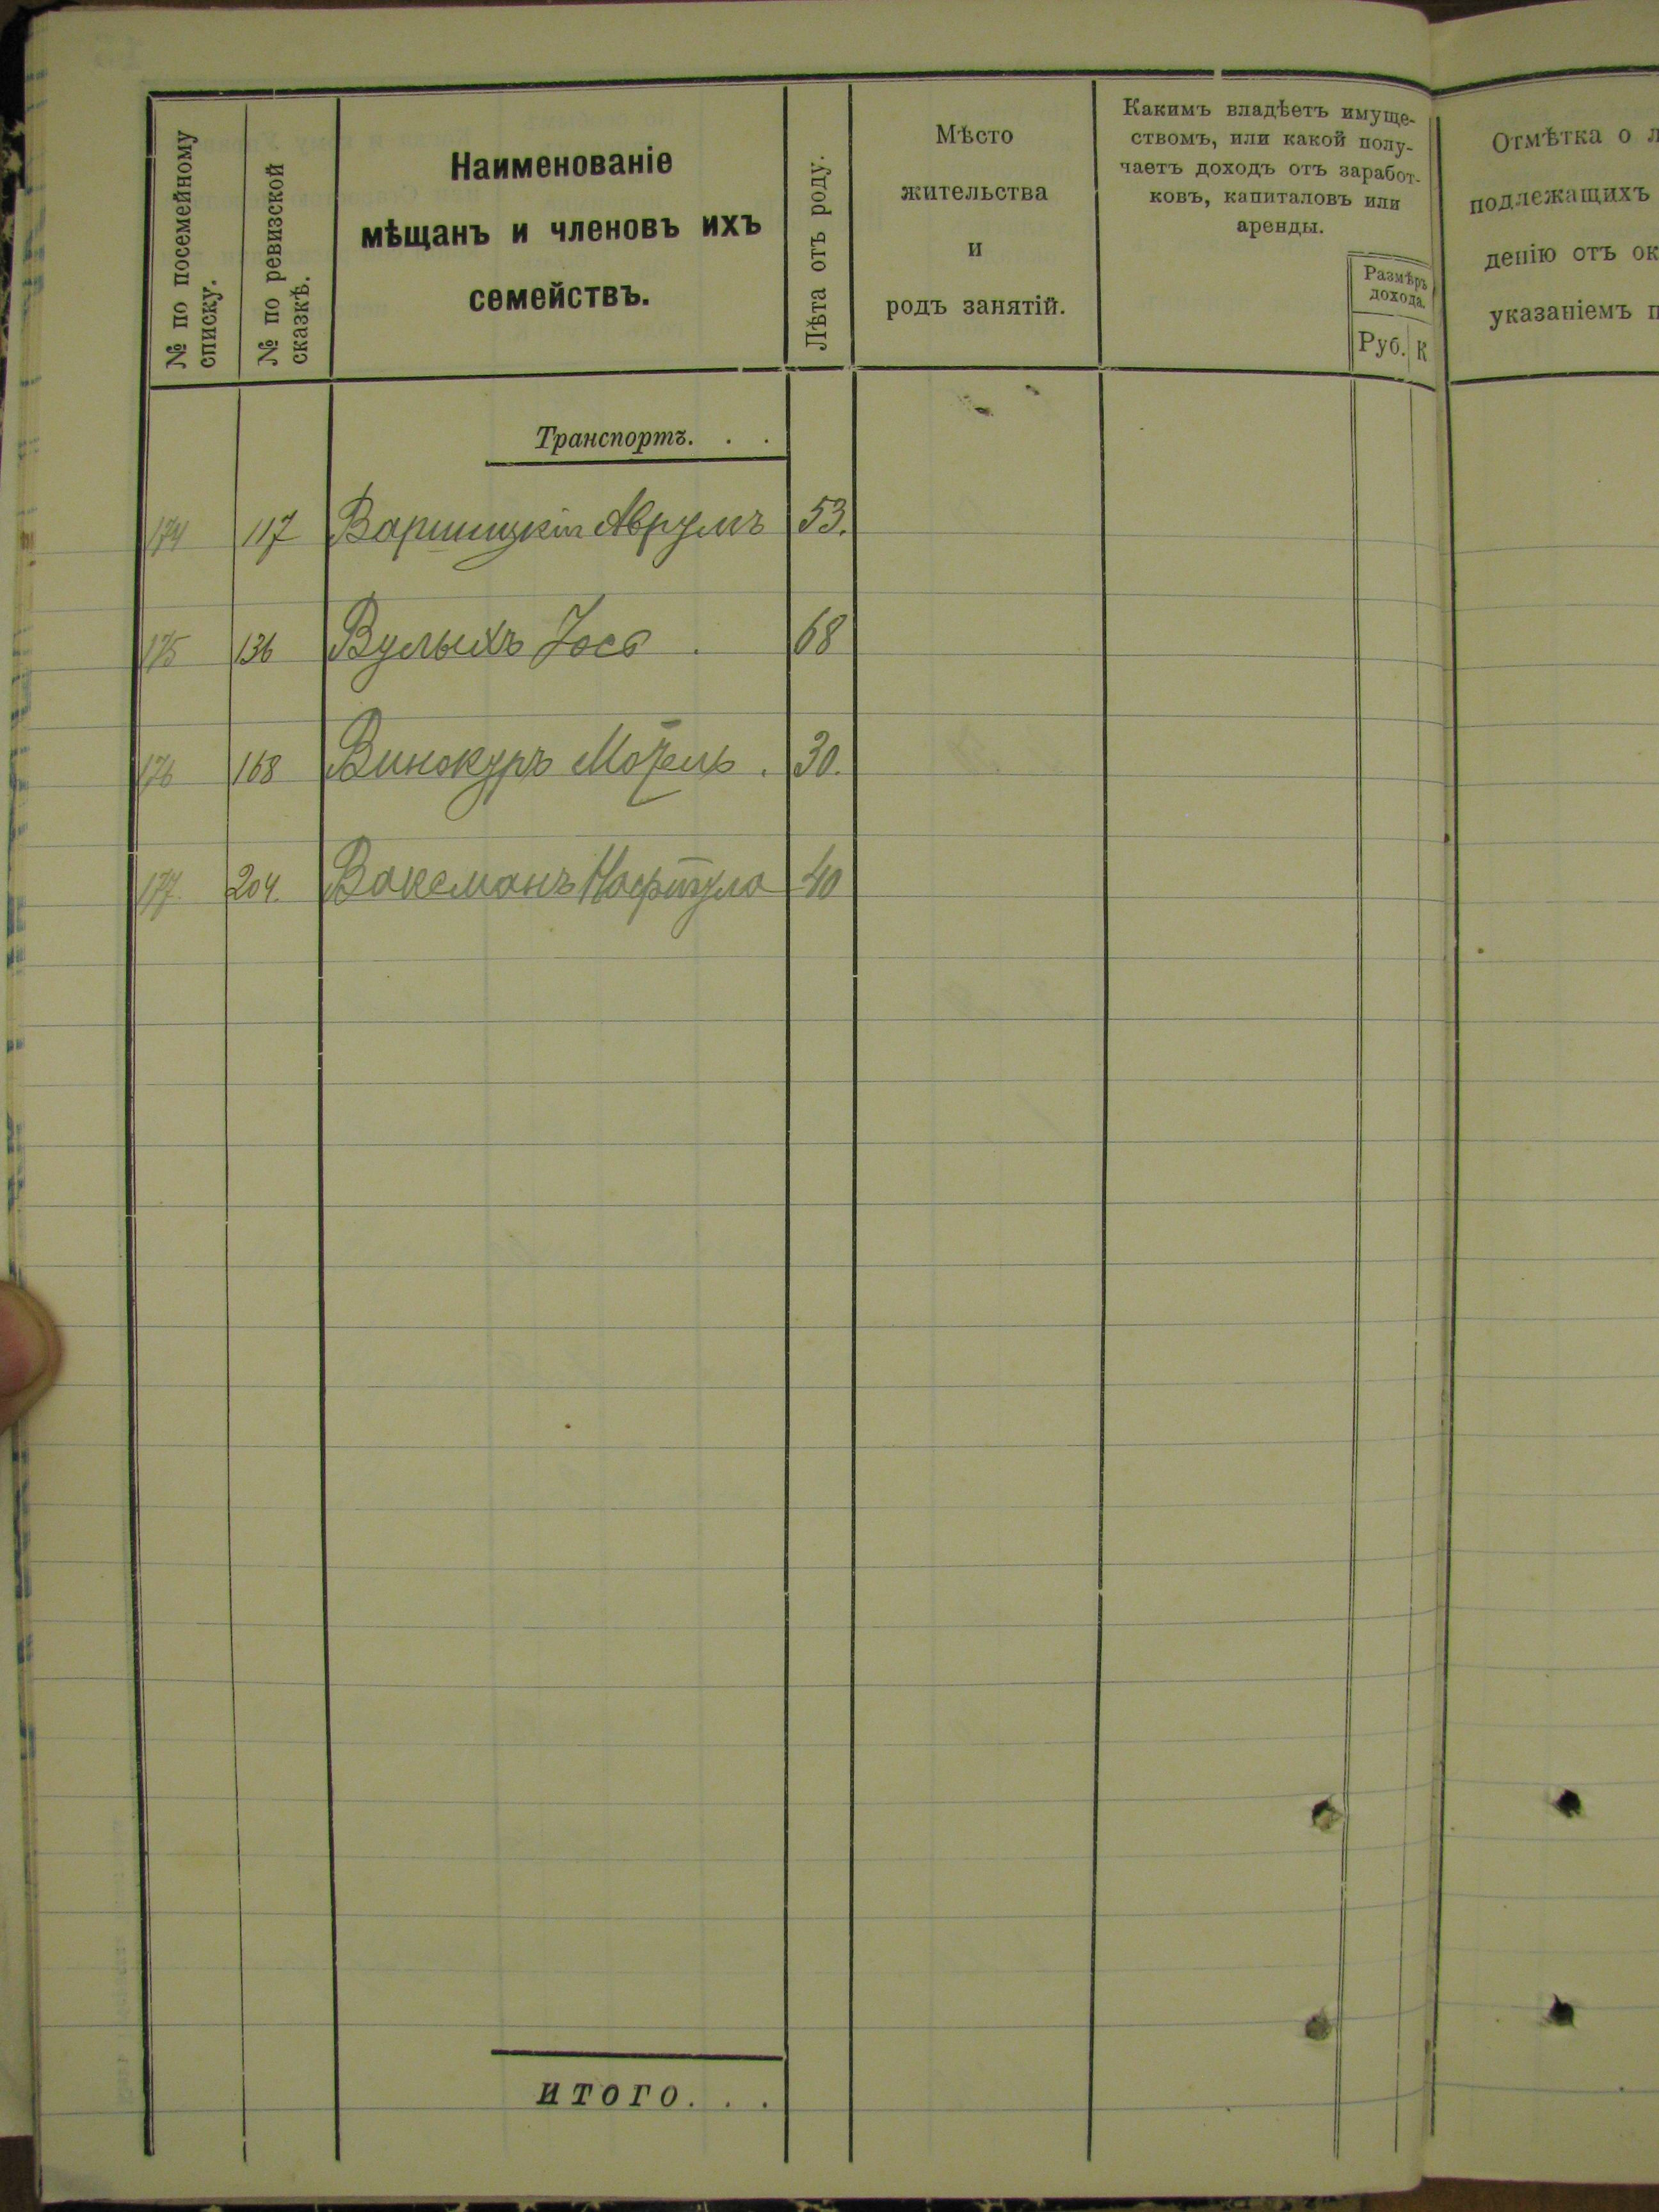 № по посемейному
списку.
№ по ревизской
сказкѣ.
Наименованіе
мѣщанъ и членовъ ихъ
семействъ.
Лѣта отъ роду.
Мѣсто
жительства
и
родъ занятій.
Какимъ владѣетъ имуще-
ствомъ, или какой полу-
чаетъ доходъ отъ заработ-
ковъ, капиталовъ или
аренды.
Размѣръ
дохода.
Руб. К
Отмѣтка о л
подлежащихъ
денію отъ ок
указаніемъ п
Транспортъ. . .
174 117 Варшицкій Аврумъ 53.
175 136 Вулыхъ Iось . 68
176 168 Винокуръ Мотель . 30.
177. 204. Ваксманъ Нафтула 40
итого. . .